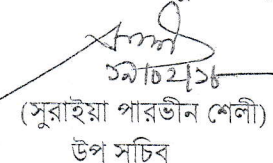 ১৯/০২/১৮
(সুরাইয়া পারভীন শেলী)
উপ সচিব